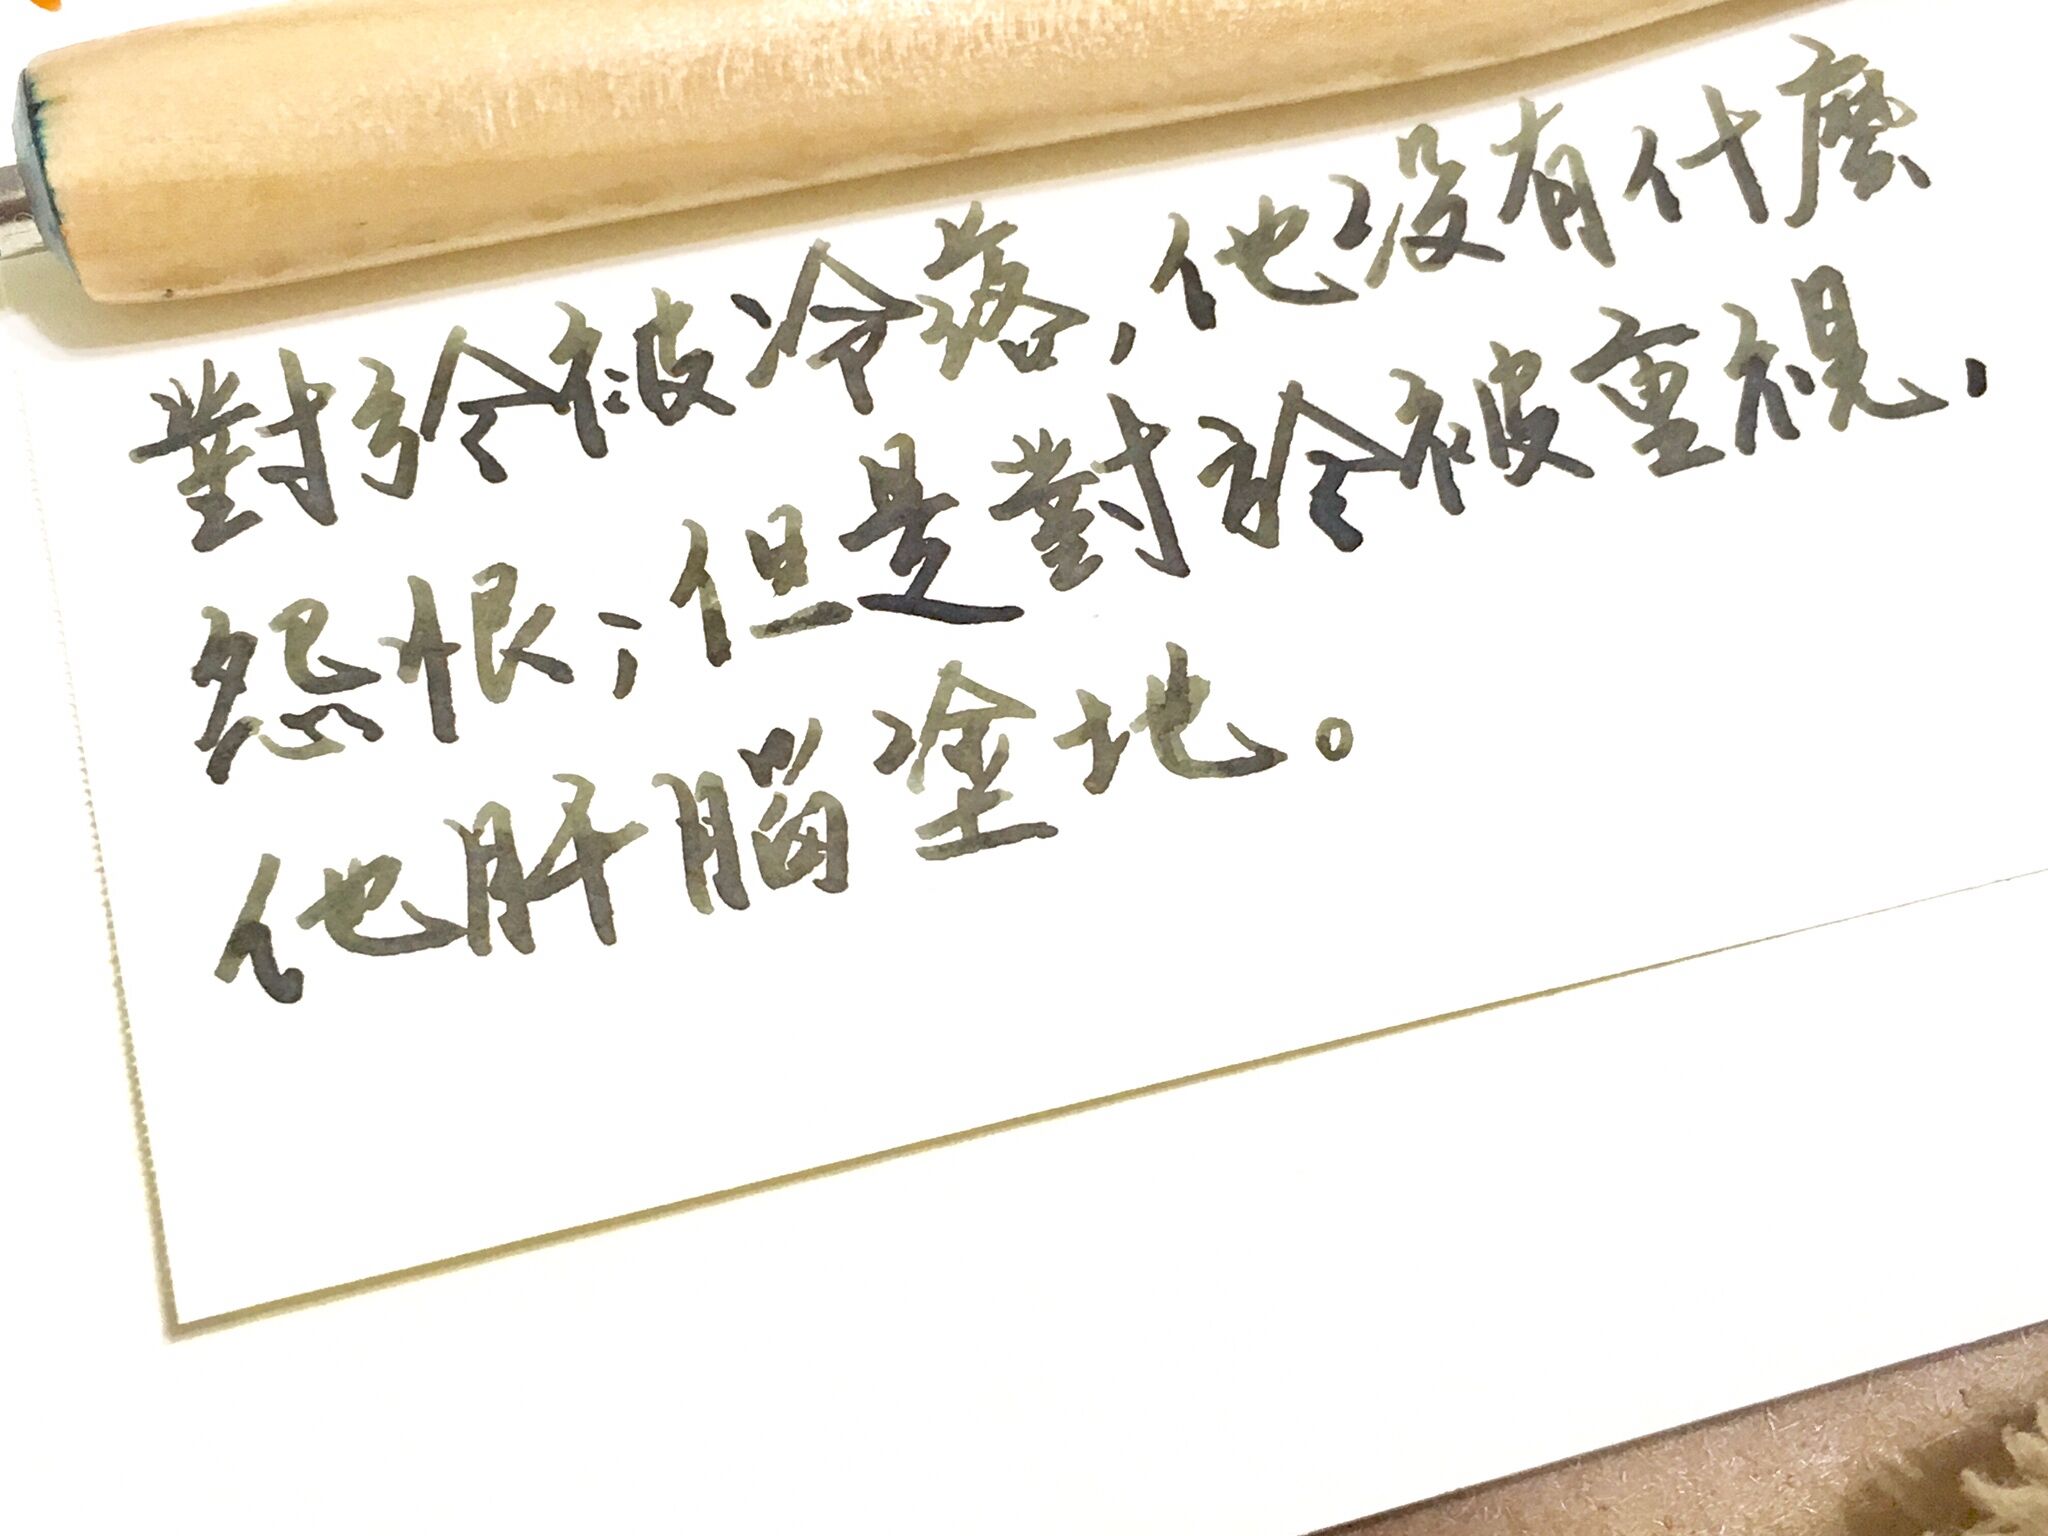 對於被冷落,他沒有什麼
怨恨;但是對於被重視,
他肝腦塗地。